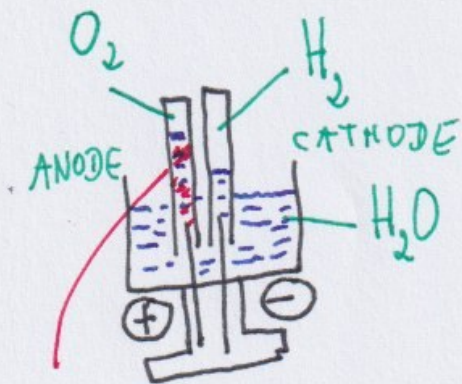 O₂
H₂
ANODE
CATHODE
H₂O
+
−